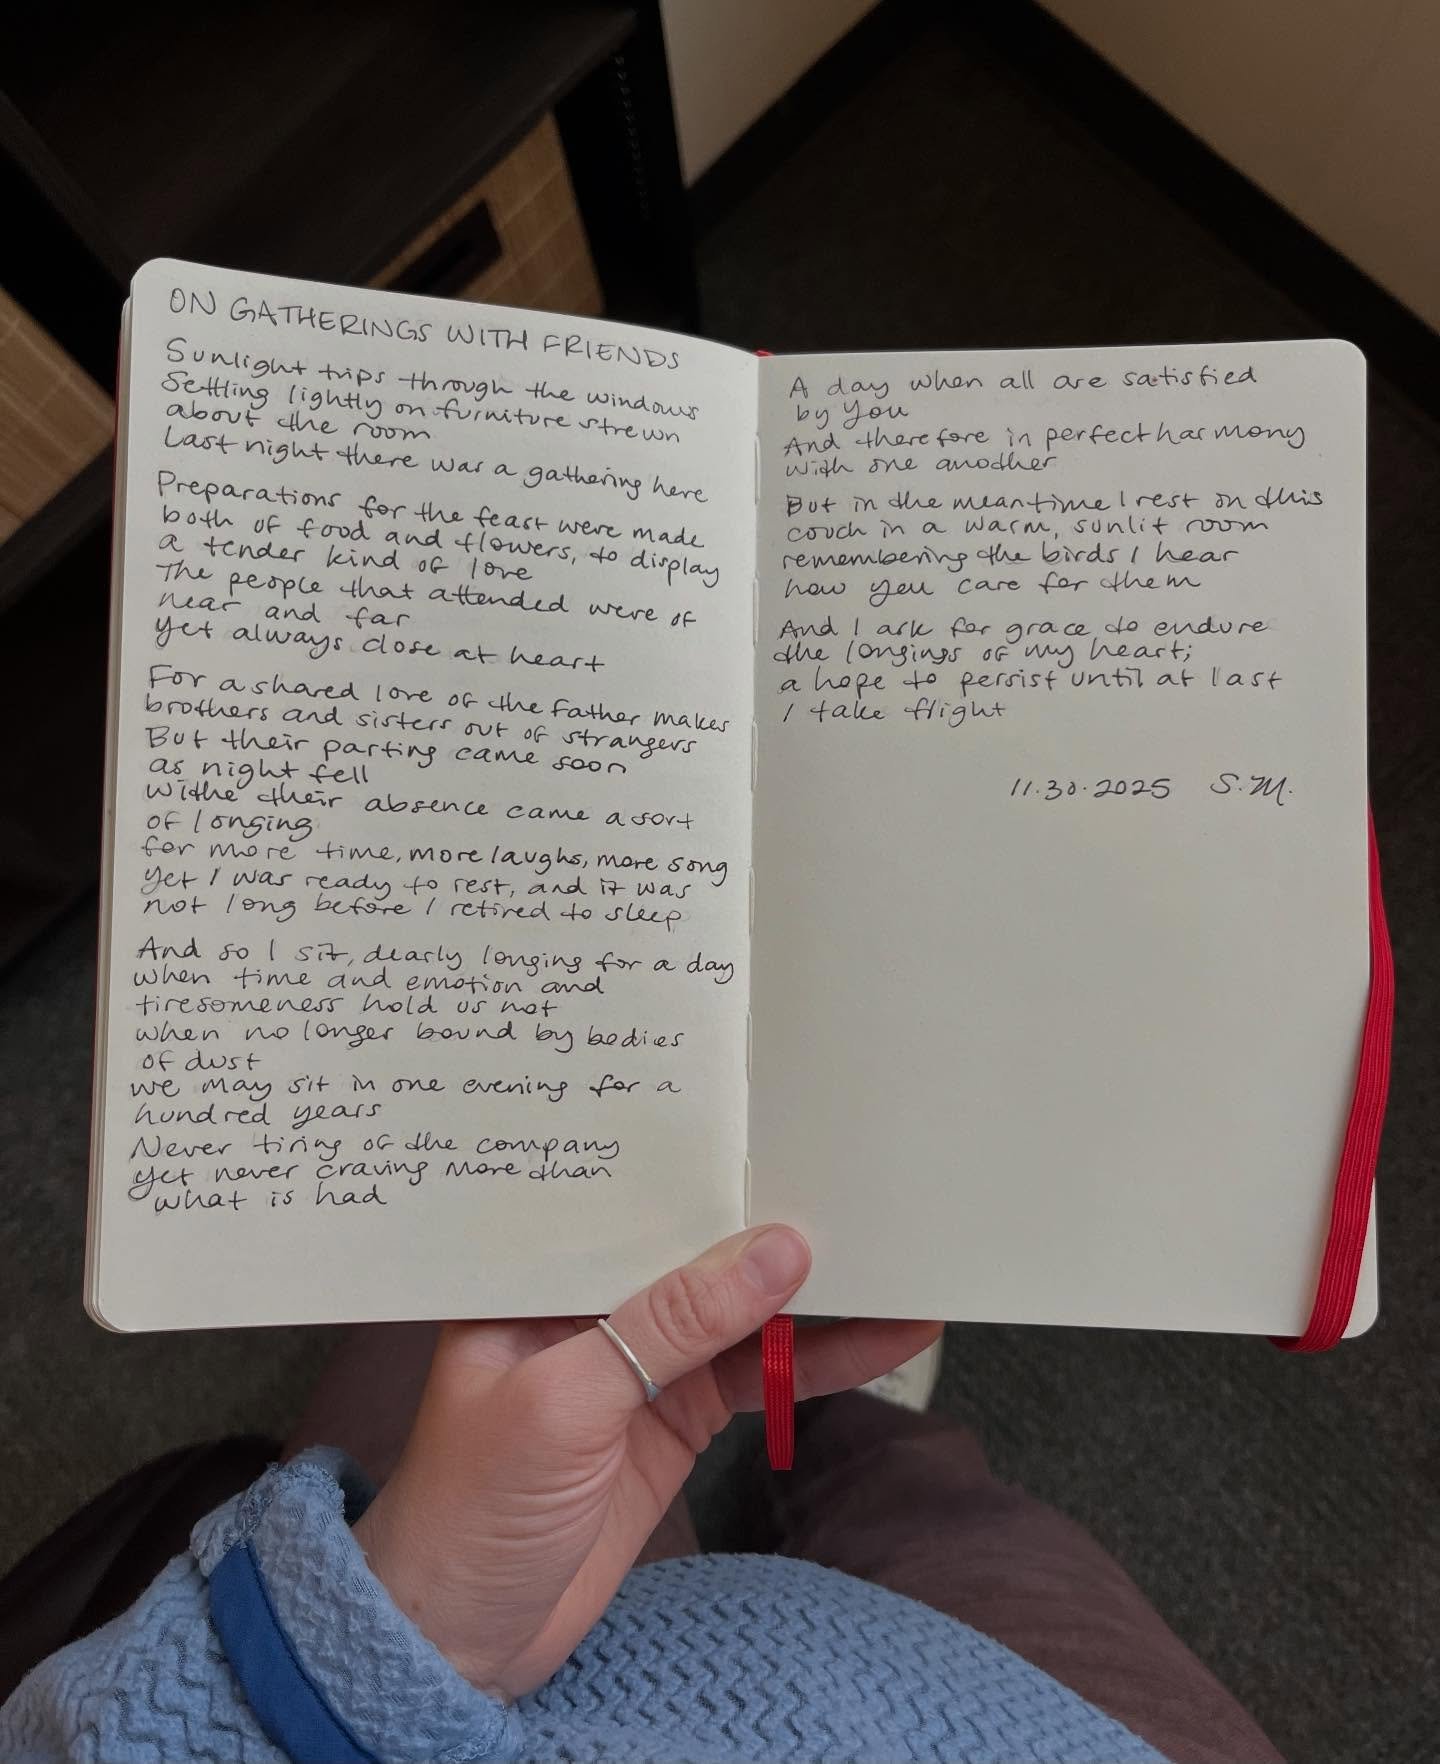 ON GATHERINGS WITH FRIENDS
Sunlight trips through the windows
Settling lightly on furniture strewn
about the room
Last night there was a gathering here
Preparations for the feast were made
both of food and flowers, to display
a tender kind of love
The people that attended were of
near and far
yet always close at heart
For a shared love of the Father makes
brothers and sisters out of strangers
But their parting came soon
as night fell
Withe their absence came a sort
of longing
for more time, more laughs, more song
yet I was ready to rest, and it was
not long before I retired to sleep
And so I sit, dearly longing for a day
when time and emotion and
tiresomeness hold us not
when no longer bound by bodies
of dust
we may sit in one evening for a
hundred years
Never tiring of the company
yet never craving more than
what is had
A day when all are satisfied
by you
And therefore in perfect harmony
with one another
But in the meantime I rest on this
couch in a warm, sunlit room
remembering the birds I hear
how you care for them
And I ask for grace to endure
the longings of my heart;
a hope to persist until at last
I take flight
11.30.2025 S.M.